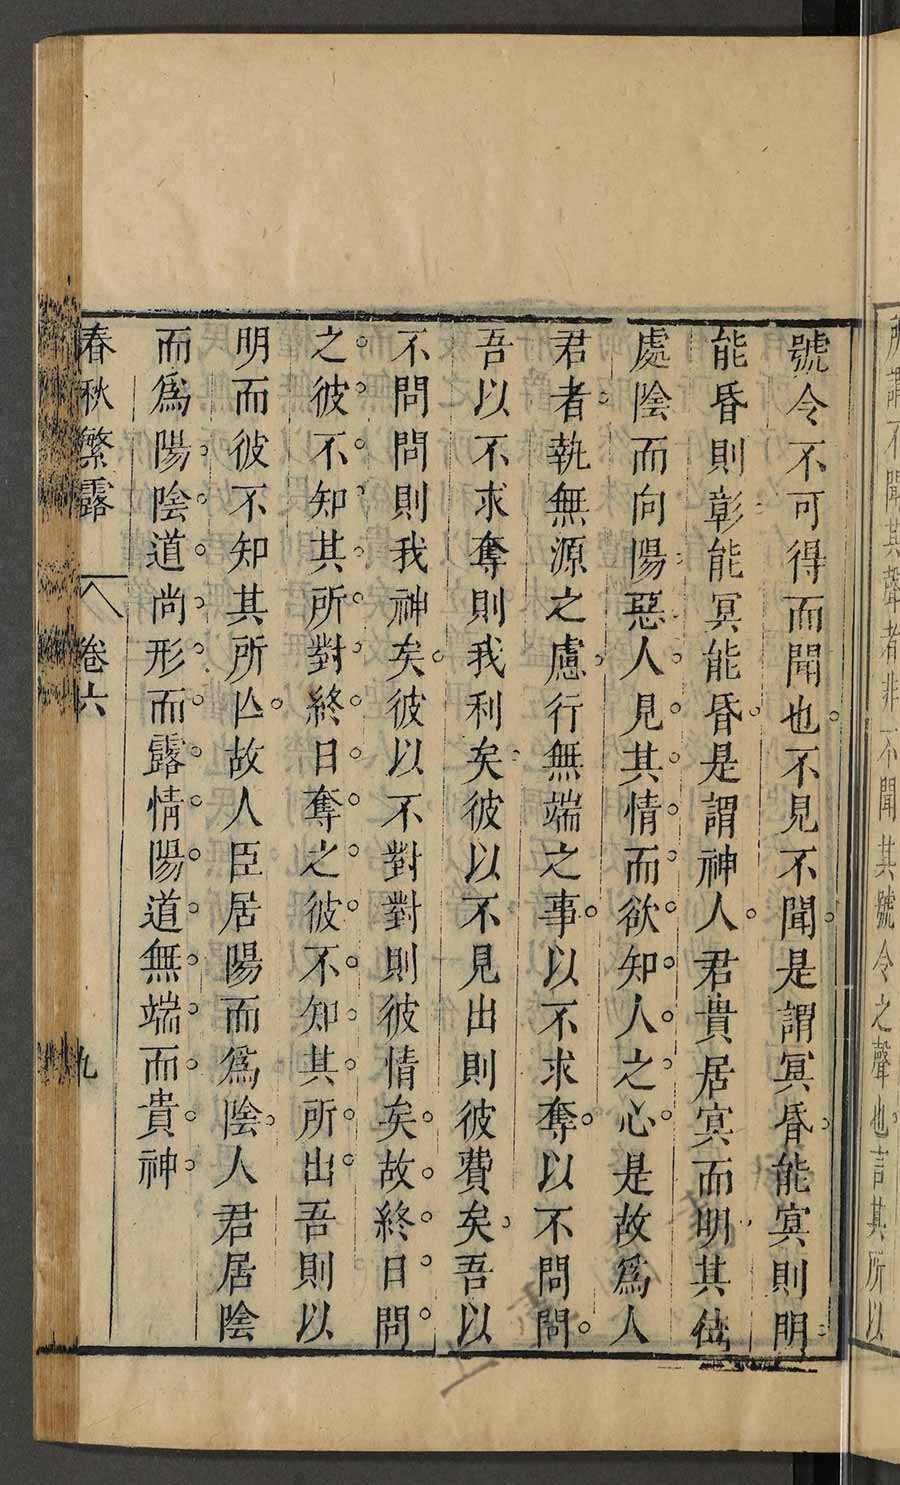 所謂不聞其聲者非不聞其號令之聲也言其所以
號令不可得而聞也不見不聞是謂冥昏能冥則明
能昏則彰能冥能昏是謂神人君貴居冥而明其位
處陰而向陽惡人見其情而欲知人之心是故爲人
君者執無源之慮行無端之事以不求奪以不問問
吾以不求奪則我利矣彼以不見出則彼費矣吾以
不問問則我神矣彼以不對對則彼情矣故終日問
之彼不知其所對終日奪之彼不知其所出吾則以
明而彼不知其所亾故人臣居陽而爲陰人君居陰
而爲陽陰道尚形而露情陽道無端而貴神
春秋繁露 卷六 九